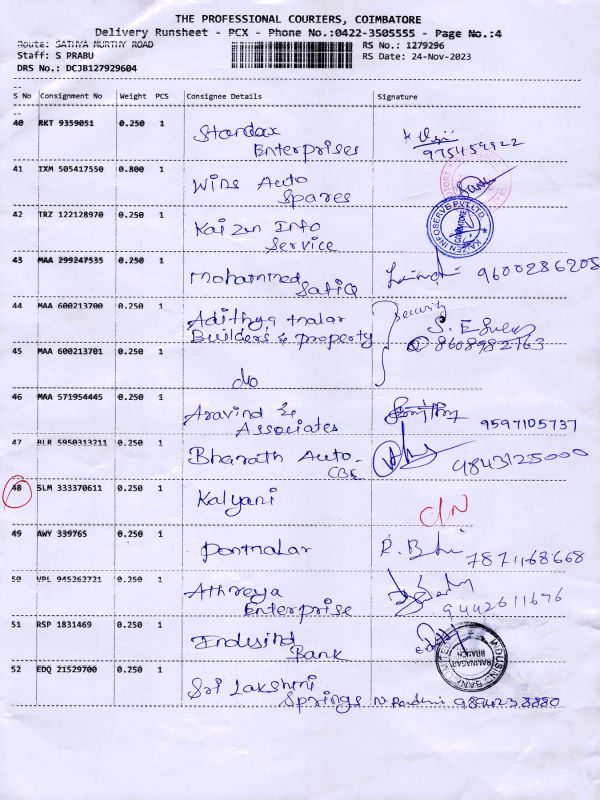 THE PROFESSIONAL COURIERS, COIMBATORE
Delivery Runsheet - PCX - Phone No.:0422-3505555 - Page No.:4
Route: SATHYA MURTHY ROAD RS No.: 1279296
Staff: S PRABU RS Date: 24-Nov-2023
DRS No.: DCJB127929604
S No Consignment No Weight PCS Consignee Details Signature
40 RKT 9359051 0.250 1 Standax
Enterprises 975459922
41 IXM 505417550 0.800 1 Wins Auto
Spares
42 TRZ 122128970 0.250 1 Kaizen Info
Service
KAIZEN INFOSERVE PVT LTD
43 MAA 299247535 0.250 1 Mohammed
Safiq 9600286205
44 MAA 600213700 0.250 1 Adithya malar
Builders & property
Security
8608982763
45 MAA 600213701 0.250 1 do
46 MAA 571954445 0.250 1 Aravind &
Associates 9597105737
47 BLR 5950313211 0.250 1 Bharath Auto-
CBE 9843125000
48 SLM 333370611 0.250 1 Kalyani
49 AWY 339765 0.250 1 Ponmalar 7871168668
50 VPL 945262721 0.250 1 Athreya
Enterprise 9442611676
51 RSP 1831469 0.250 1 Indusind
Bank
INDUSIND BANK LIMITED
RAMNAGAR
BRANCH
52 EDQ 21529700 0.250 1 Sri Lakshmi
Springs